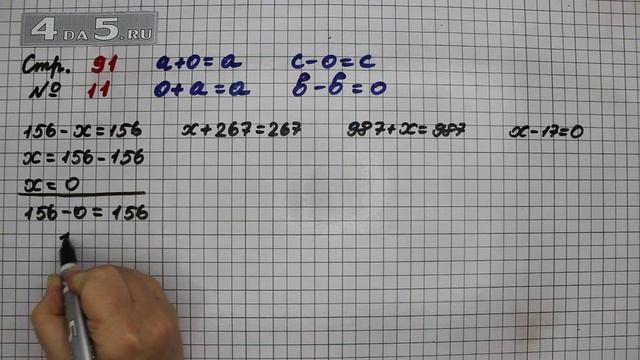 4DA5.RU
Стр. 91 a+0=a c-0=c
№ 11 0+a=a в-в=0
156-x=156 x+267=267 987+x=987 x-17=0
x=156-156
x=0
156-0=156